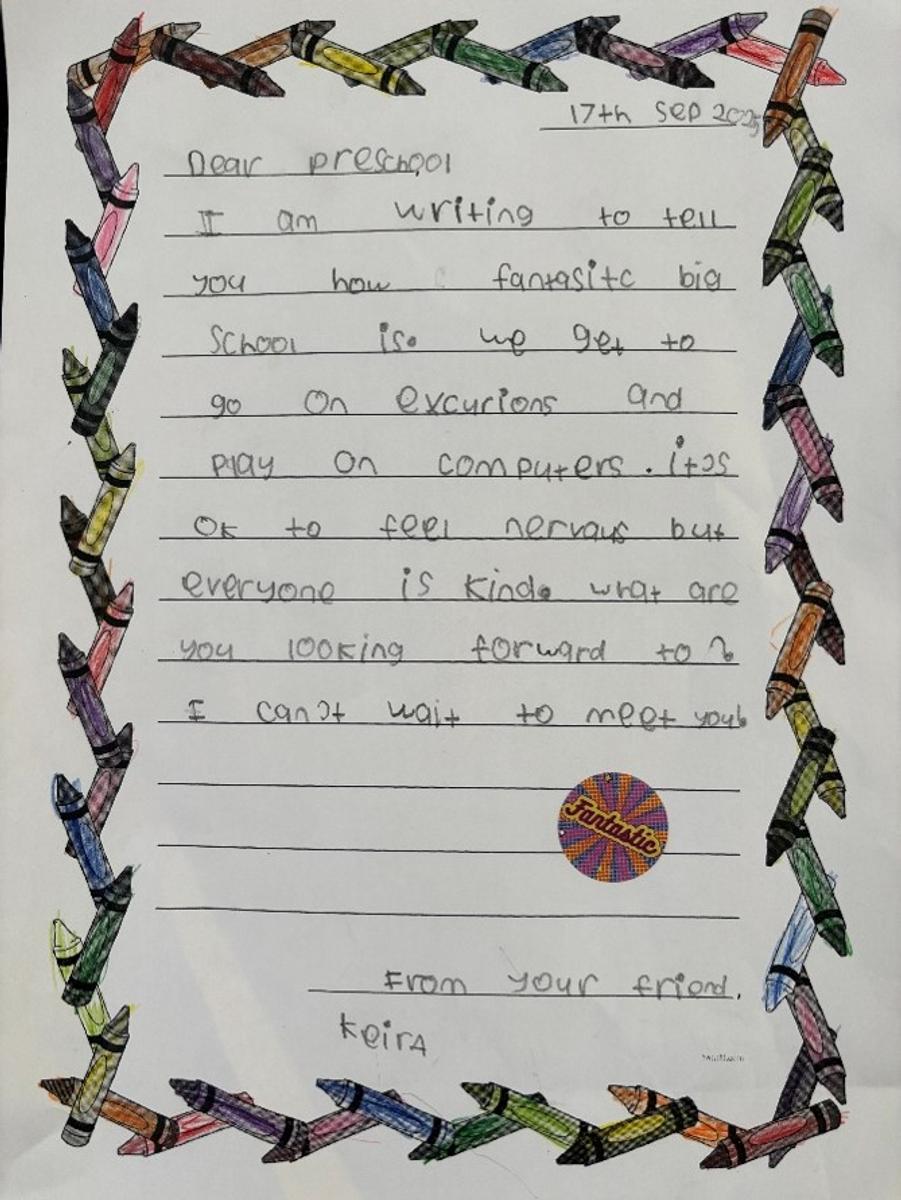 17th sep 2025
Dear preschool
I am writing to tell
you how fantasitc big
school is. we get to
go on excurions and
play on computers. it's
ok to feel nervous but
everyone is kind. what are
you looking forward to?
I can't wait to meet you!
Fantastic
From your friend,
Keira